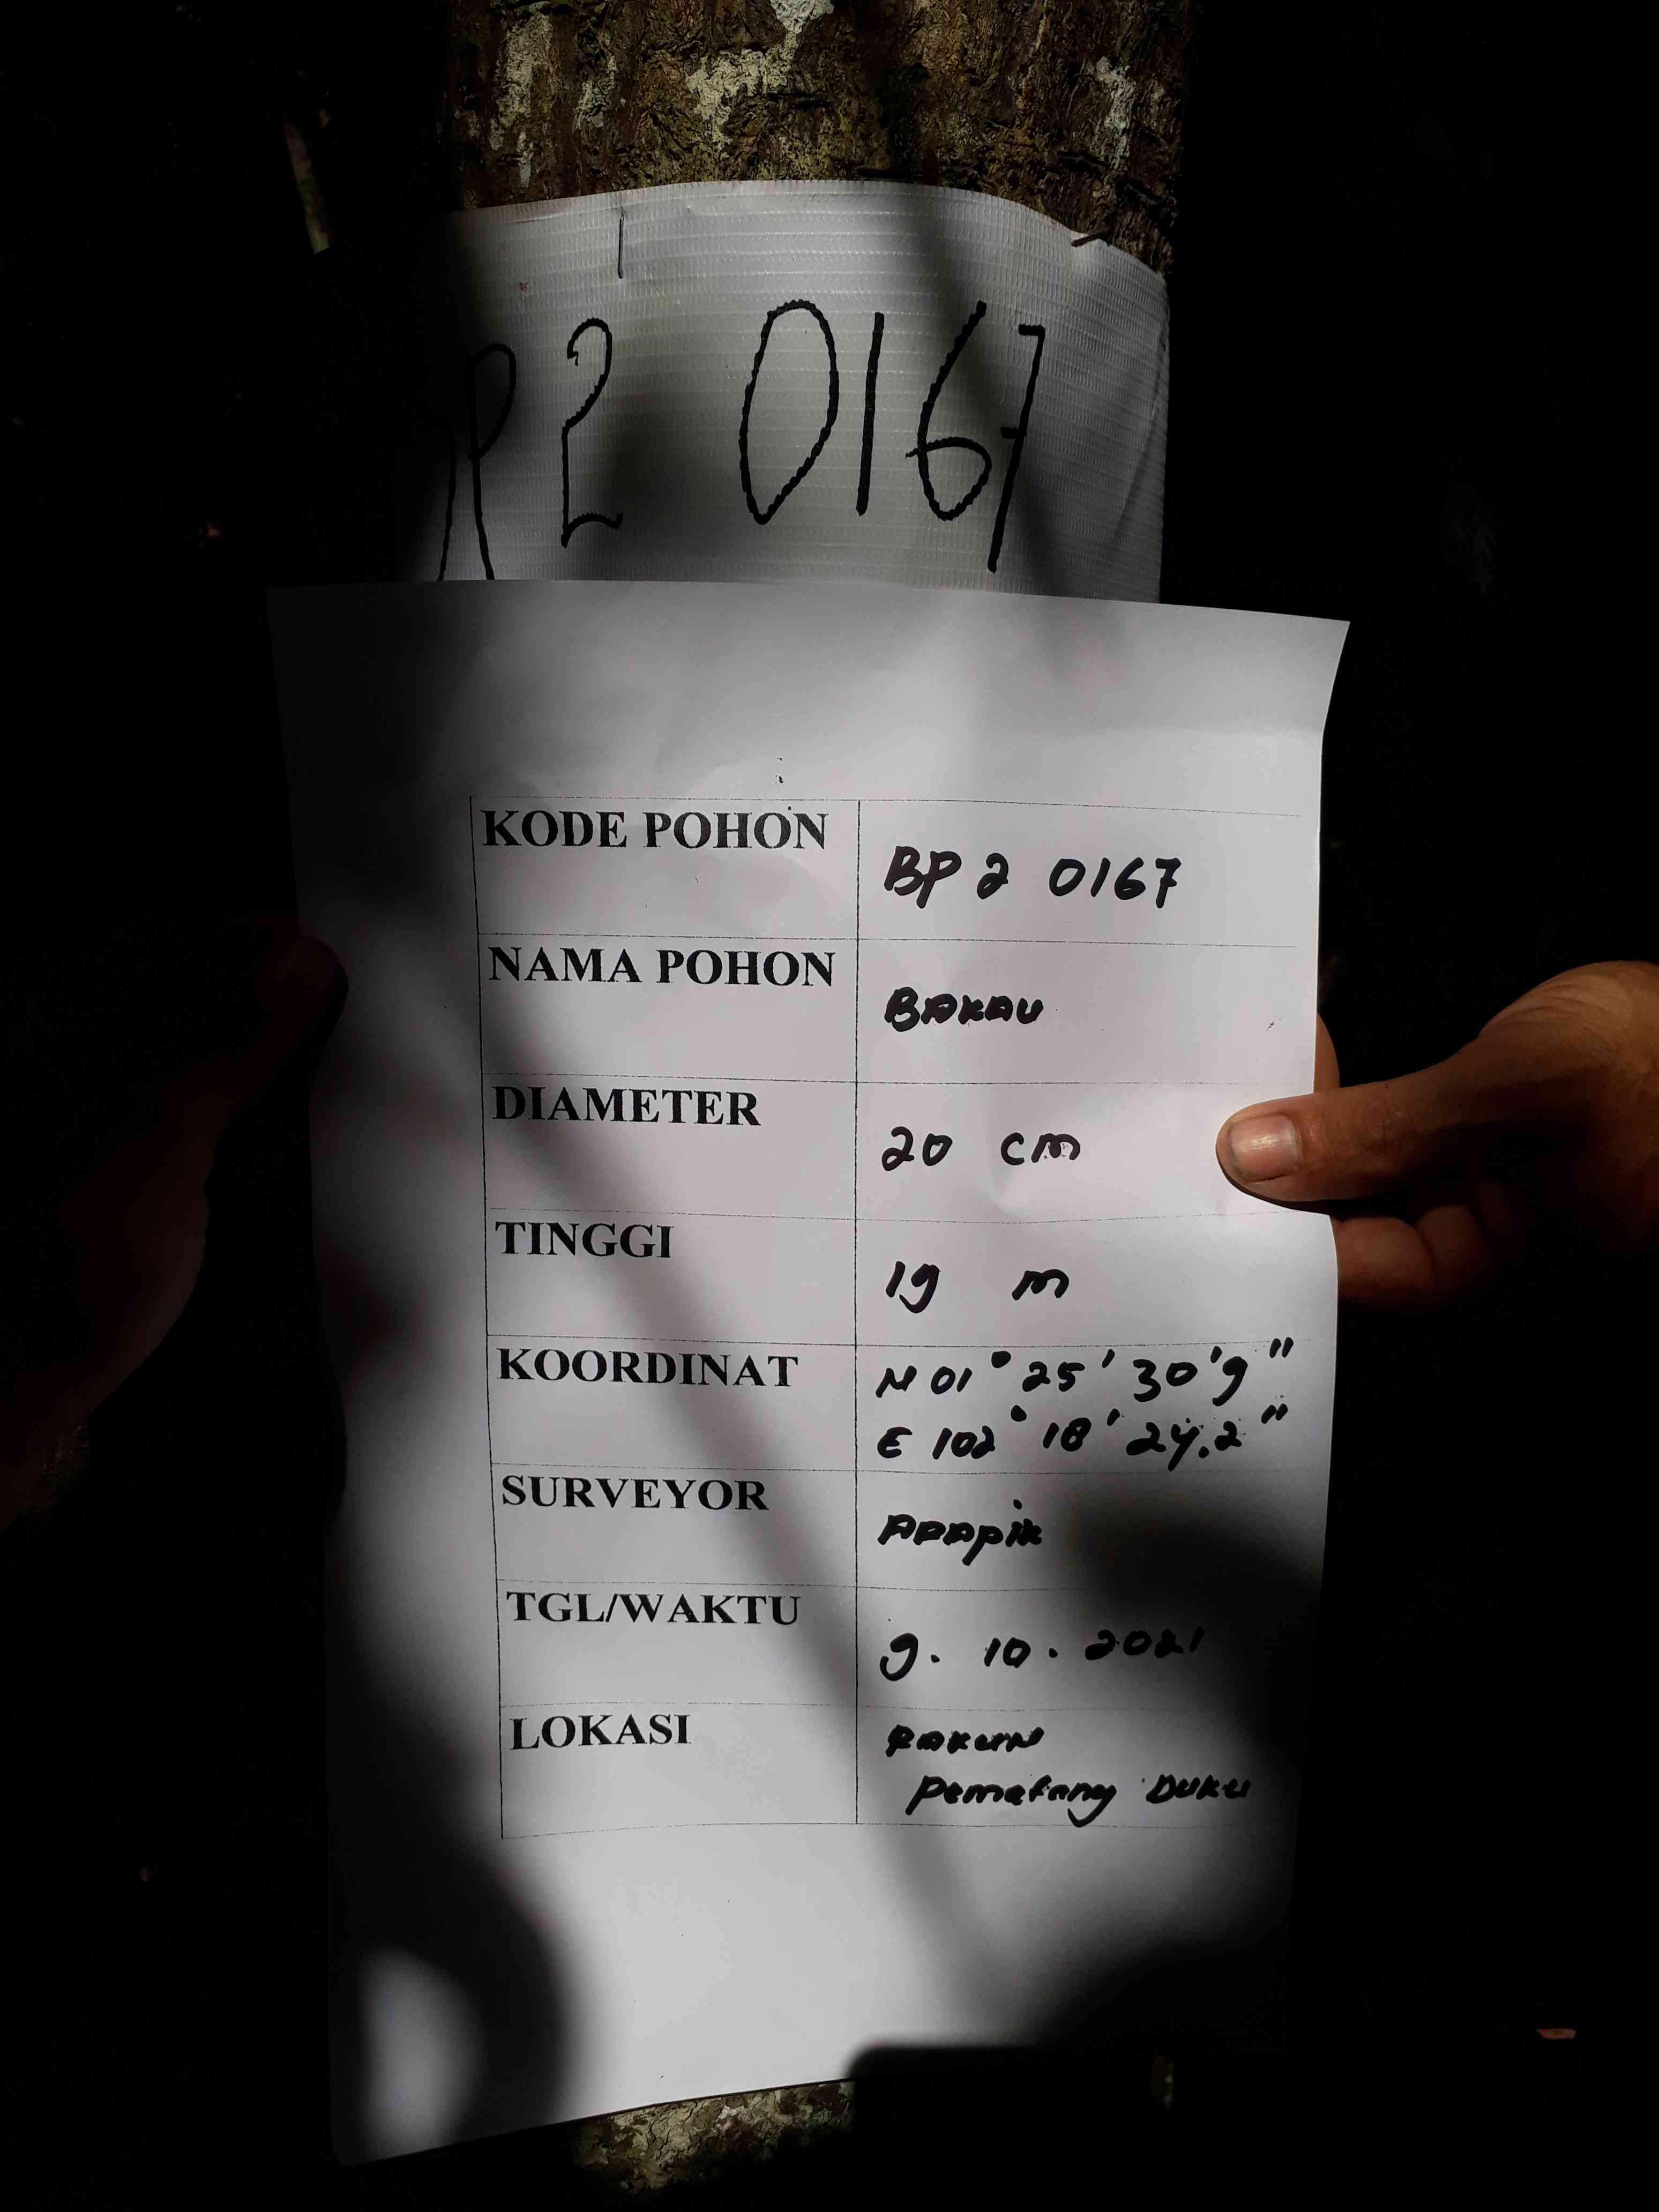 P2 0167
KODE POHON
BP 2 0167
NAMA POHON
BAKAU
DIAMETER
20 cm
TINGGI
19 m
KOORDINAT
N 01° 25' 30'9"
E 102° 18' 24.2"
SURVEYOR
TGL/WAKTU
9. 10. 2021
LOKASI
Pematang Duku